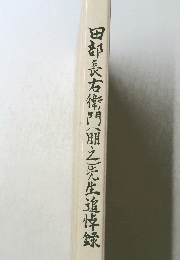 田部長右衛門(朋之)先生追悼録